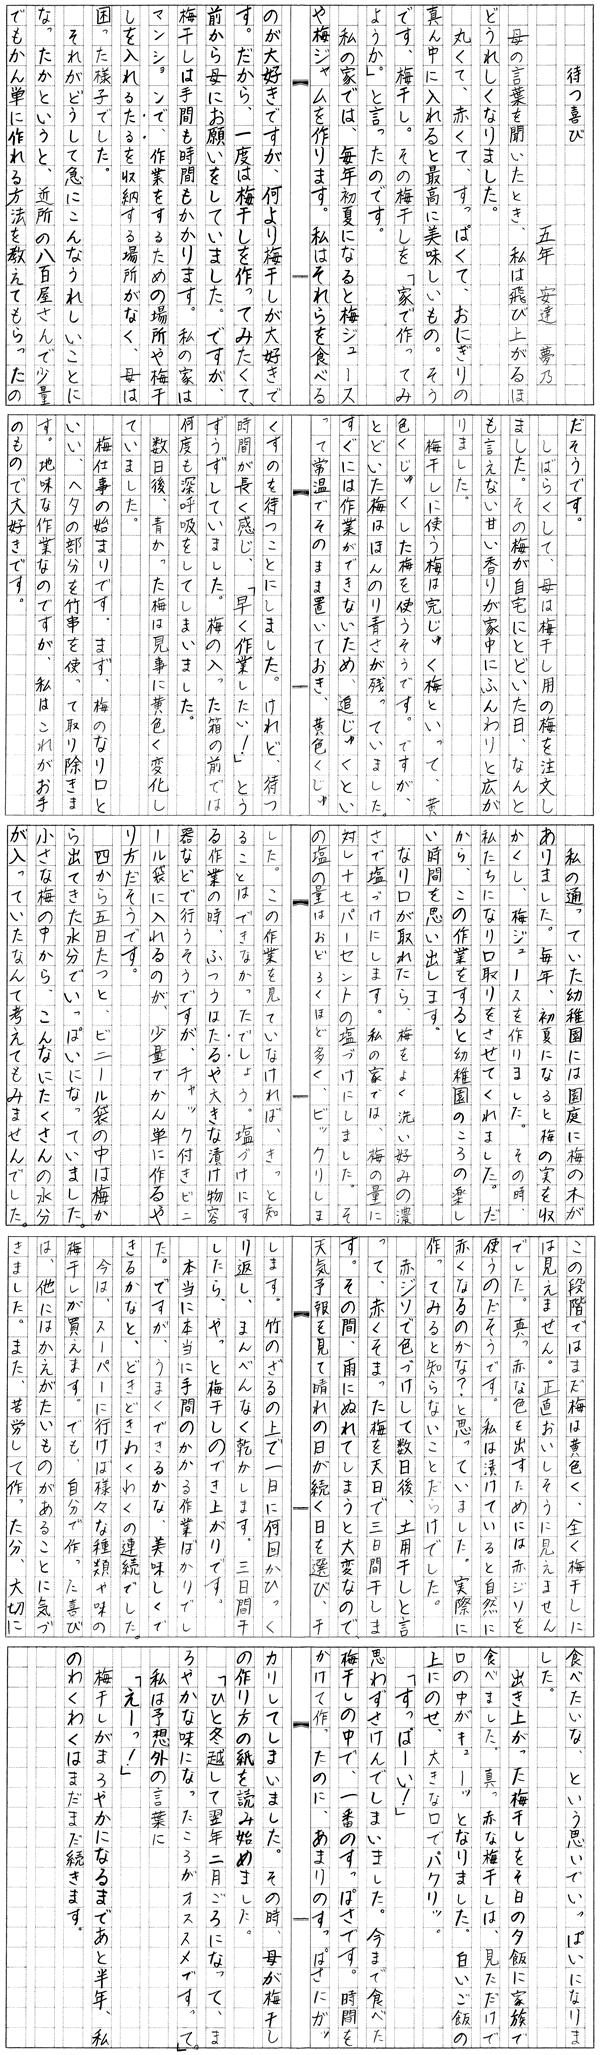 待つ喜び
五年　安達　夢乃
母の言葉を聞いたとき、私は飛び上がるほ
どうれしくなりました。
丸くて、赤くて、すっぱくて、おにぎりの
真ん中に入れると最高に美味しいもの。そう
です、梅干し。その梅干しを「家で作ってみ
ようか」。と言ったのです。
私の家では、毎年初夏になると梅ジュース
や梅ジャムを作ります。私はそれらを食べる
のが大好きですが、何より梅干しが大好きで
す。だから、一度は梅干しを作ってみたくて、
前から母にお願いをしていました。ですが、
梅干しは手間も時間もかかります。私の家は
マンションで、作業をするための場所や梅干
しを入れるたるを収納する場所がなく、母は
困った様子でした。
それがどうして急にこんなうれしいことに
なったかというと、近所の八百屋さんで少量
でもかん単に作れる方法を教えてもらったの
だそうです。
しばらくして、母は梅干し用の梅を注文し
ました。その梅が自宅にとどいた日、なんと
も言えない甘い香りが家中にふんわりと広が
りました。
梅干しに使う梅は完じゅく梅といって、黄
色くじゅくした梅を使うそうです。ですが、
とどいた梅はほんのり青さが残っていました。
すぐには作業ができないため、追じゅくとい
って常温でそのまま置いておき、黄色くじゅ
くすのを待つことにしました。けれど、待つ
時間が長く感じ、「早く作業したい！」とう
ずうずしていました。梅の入った箱の前では
何度も深呼吸をしてしまいました。
数日後、青かった梅は見事に黄色く変化し
ていました。
梅仕事の始まりです。まず、梅のなり口と
いい、ヘタの部分を竹串を使って取り除きま
す。地味な作業なのですが、私はこれがお手
のもので大好きです。
私の通っていた幼稚園には園庭に梅の木が
ありました。毎年、初夏になると梅の実を収
かくし、梅ジュースを作りました。その時、
私たちになり口取りをさせてくれました。だ
から、この作業をすると幼稚園のころの楽し
い時間を思い出します。
なり口が取れたら、梅をよく洗い好みの濃
さで塩づけにします。私の家では、梅の量に
対し十七パーセントの塩づけにしました。そ
の塩の量はおどろくほど多く、ビックリしま
した。この作業を見ていなければ、きっと知
ることはできなかったでしょう。塩づけにす
る作業の時、ふつうはたるや大きな漬け物容
器などで行うそうですが、チャック付きビニ
ール袋に入れるのが、少量でかん単に作るや
り方だそうです。
四から五日たつと、ビニール袋の中は梅か
ら出てきた水分でいっぱいになっていました。
小さな梅の中から、こんなにたくさんの水分
が入っていたなんて考えてもみませんでした。
この段階ではまだ梅は黄色く、全く梅干しに
は見えません。正直おいしそうに見えません
でした。真っ赤な色を出すためには赤ジソを
使うのだそうです。私は漬けていると自然に
赤くなるのかな？と思っていました。実際に
作ってみると知らないことだらけでした。
赤ジソで色づけして数日後、土用干しと言
って、赤くそまった梅を天日で三日間干しま
す。その間、雨にぬれてしまうと大変なので、
天気予報を見て晴れの日が続く日を選び、干
します。竹のざるの上で一日に何回かひっく
り返し、まんべんなく乾かします。三日間干
したら、やっと梅干しのでき上がりです。
本当に本当に手間のかかる作業ばかりでし
た。ですが、うまくできるかな、美味しくで
きるかなと、どきどきわくわくの連続でした。
今は、スーパーに行けば様々な種類や味の
梅干しが買えます。でも、自分で作った喜び
は、他にはかえがたいものがあることに気づ
きました。また、苦労して作った分、大切に
食べたいな、という思いでいっぱいになりま
した。
出き上がった梅干しをその日の夕飯に家族で
食べました。真っ赤な梅干しは、見ただけで
口の中がキューッとなりました。白いご飯の
上にのせ、大きな口でパクリッ。
「すっぱーい！」
思わずさけんでしまいました。今まで食べた
梅干しの中で、一番のすっぱさです。時間を
かけて作ったのに、あまりのすっぱさにガッ
カリしてしまいました。その時、母が梅干し
の作り方の紙を読み始めました。
「ひと冬越して翌年二月ごろになって、ま
ろやかな味になったころがオススメです。って。」
私は予想外の言葉に
「えーっ！」
梅干しがまろやかになるまであと半年、私
のわくわくはまだまだ続きます。